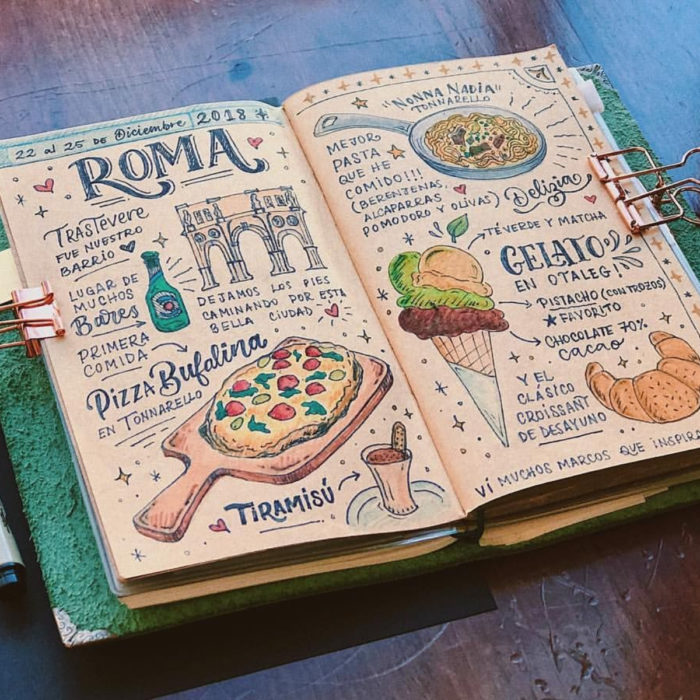 22 al 25 de Diciembre 2018
ROMA
TRASTÉVERE
FUE NUESTRO
BARRIO
LUGAR DE
MUCHOS
Bares
PRIMERA
COMIDA
DEJAMOS LOS PIES
CAMINANDO POR ESTA
BELLA CIUDAD
PIZZA Bufalina
EN TONNARELLO
TIRAMISÚ
"NONNA NADIA"
TONNARELLO
MEJOR
PASTA
QUE HE
COMIDO!!!
(BERENJENAS,
ALCAPARRAS
POMODORO Y OLIVAS)
Delizia
TÉ VERDE Y MATCHA
GELATO
EN OTALEG!
PISTACHO (CON TROZOS)
FAVORITO
CHOCOLATE 70%
CACAO
Y EL
CLÁSICO
CROISSANT
DE DESAYUNO
VÍ MUCHOS MARCOS QUE INSPIRA